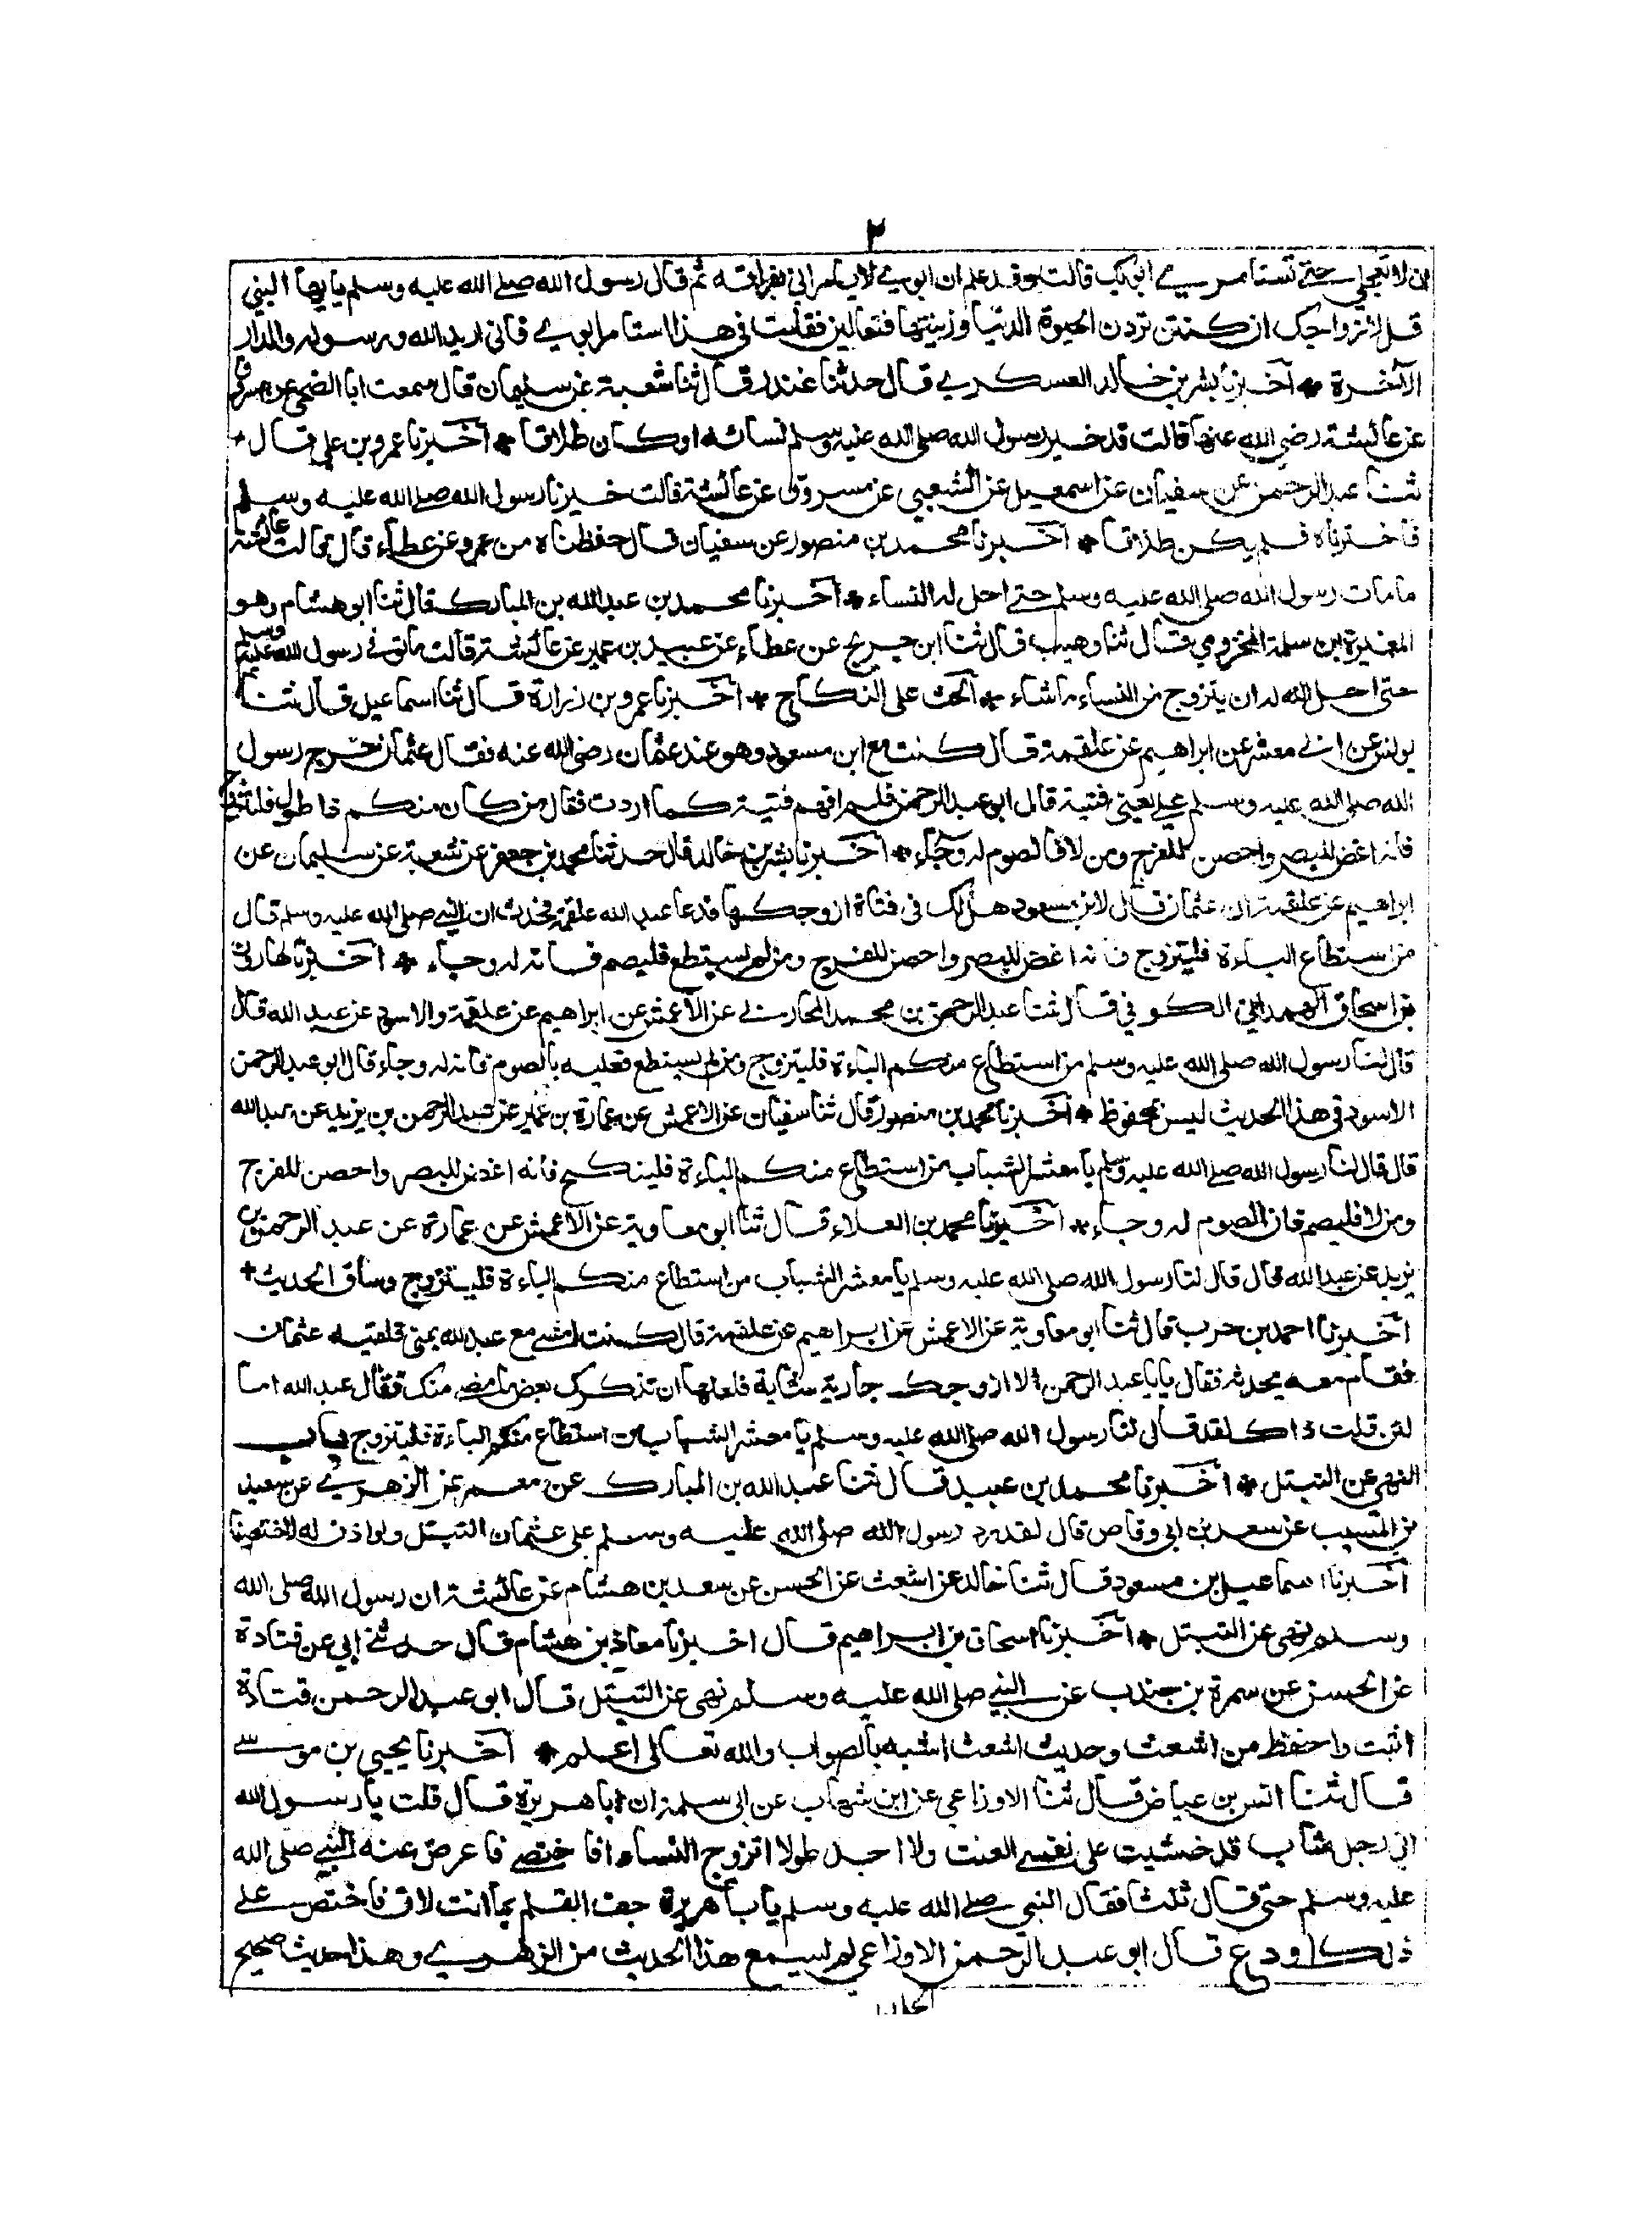 ٢
ان لا تعجلي حتى تستامري ابويك قالت وقد علم ان ابوي لا يامراني بفراقه ثم قال رسول الله صلى الله عليه وسلم يايها النبي
قل لازواجك ان كنتن تردن الحيوة الدنيا وزينتها فتعالين فقلت في هذا استامر ابوي فاني اريد الله ورسوله والدار
الآخرة * اخبرنا بشر بن خالد العسكري قال حدثنا غندر قال ثنا شعبة عن سليمان قال سمعت ابا الضحى عن مسروق
عن عائشة رضي الله عنها قالت قد خير رسول الله صلى الله عليه وسلم نسائه او كان طلاقا * اخبرنا عمرو بن علي قال
ثنا عبد الرحمن عن سفيان عن اسمعيل عن الشعبي عن مسروق عن عائشة قالت خيرنا رسول الله صلى الله عليه وسلم
فاخترناه فلم يكن طلاقا * اخبرنا محمد بن منصور عن سفيان قال حفظناه من عمرو عن عطاء قال قالت عائشة
ما مات رسول الله صلى الله عليه وسلم حتى احل له النساء * اخبرنا محمد بن عبد الله بن المبارك قال ثنا ابو هشام وهو
المغيرة ابن سلمة المخزومي قال ثنا وهيب قال ثنا ابن جريج عن عطاء عن عبيد بن عمير عن عائشة قالت ما توفي رسول الله عليه وسلم
حتى احل الله له ان يتزوج من النساء ما شاء * الحث على النكاح * اخبرنا عمرو بن زرارة قال ثنا اسماعيل قال ثنا
يونس عن ابي معشر عن ابراهيم عن علقمة قال كنت مع ابن مسعود وهو عند عثمان رضي الله عنه فقال عثمان خرج رسول
الله صلى الله عليه وسلم على يعني فتية قال ابو عبد الرحمن فلم افهم فتية كما اردت فقال من كان منكم ذا طول فليتزوج
فانه اغض للبصر واحصن للفرج ومن لا فالصوم له وجاء * اخبرنا بشر بن خالد قال حدثنا محمد بن جعفر عن شعبة عن سليمان عن
ابراهيم عن علقمة ان عثمان قال لابن مسعود هل لك في فتاة ازوجكها فدعا عبد الله علقمة فحدث ان النبي صلى الله عليه وسلم قال
من استطاع الباءة فليتزوج فانه اغض للبصر واحصن للفرج ومن لم يستطع فليصم فانه له وجاء * اخبرنا هارون
بن اسحاق الهمداني الكوفي قال ثنا عبد الرحمن بن محمد المحاربي عن الاعمش عن ابراهيم عن علقمة والاسود عن عبد الله قال
قال لنا رسول الله صلى الله عليه وسلم من استطاع منكم الباءة فليتزوج ومن لم يستطع فعليه بالصوم فانه له وجاء قال ابو عبد الرحمن
الاسود في هذا الحديث ليس بمحفوظ * اخبرنا محمد بن منصور قال ثنا سفيان عن الاعمش عن عمارة بن عمير عن عبد الرحمن بن يزيد عن عبد الله
قال قال لنا رسول الله صلى الله عليه وسلم يا معشر الشباب من استطاع منكم الباءة فلينكح فانه اغض للبصر واحصن للفرج
ومن لا فليصم فان الصوم له وجاء * اخبرنا محمد بن العلاء قال ثنا ابو معاوية عن الاعمش عن عمارة عن عبد الرحمن بن
يزيد عن عبد الله قال قال لنا رسول الله صلى الله عليه وسلم يا معشر الشباب من استطاع منكم الباءة فليتزوج وساق الحديث +
اخبرنا احمد بن حرب قال ثنا ابو معاوية عن الاعمش عن ابراهيم عن علقمة قال كنت امشي مع عبد الله بمنى فلقيه عثمان
فقام معه يحدثه فقال يابا عبد الرحمن الا ازوجك جارية شابة فلعلها ان تذكرك بعض ما مضى منك فقال عبد الله اما
لئن قلت ذاك لقد قال لنا رسول الله صلى الله عليه وسلم يا معشر الشباب من استطاع منكم الباءة فليتزوج باب
النهي عن التبتل * اخبرنا محمد بن عبيد قال ثنا عبد الله بن المبارك عن معمر عن الزهري عن سعيد
بن المسيب عن سعد بن ابي وقاص قال لقد رد رسول الله صلى الله عليه وسلم على عثمان التبتل ولو اذن له لاختصينا
اخبرنا اسماعيل بن مسعود قال ثنا خالد عن اشعث عن الحسن عن سعد بن هشام عن عائشة ان رسول الله صلى الله
وسلم نهى عن التبتل * اخبرنا اسحاق بن ابراهيم قال اخبرنا معاذ بن هشام قال حدثني ابي عن قتادة
عن الحسن عن سمرة بن جندب عن النبي صلى الله عليه وسلم نهى عن التبتل قال ابو عبد الرحمن قتادة
اثبت واحفظ من اشعث وحديث اشعث اشبه بالصواب والله تعالى اعلم * اخبرنا يحيى بن موسى
قال ثنا انس بن عياض قال ثنا الاوزاعي عن ابن شهاب عن ابي سلمة ان ابا هريرة قال قلت يا رسول الله
اني رجل شاب قد خشيت على نفسي العنت ولا اجد طولا اتزوج النساء افا ختصي فاعرض عنه النبي صلى الله
عليه وسلم حتى قال ثلثا فقال النبي صلى الله عليه وسلم يابا هريرة جف القلم بما انت لاق فاختص على
ذلك او دع قال ابو عبد الرحمن الاوزاعي لم يسمع هذا الحديث من الزهري وهذا حديث صحيح